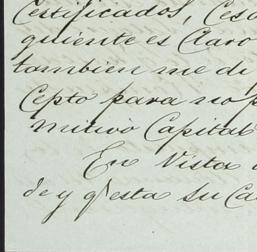 Certificados, Ces
quiente es Claro
tambien me di
Cepto para no p
mitivo Capital
En Vista
de y qesta su Ca